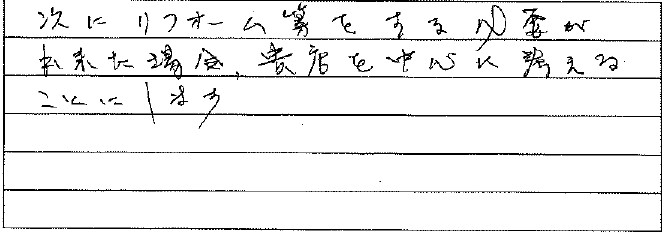 次にリフォーム等をする必要が
出来た場合、貴店を中心に考える
ことにします